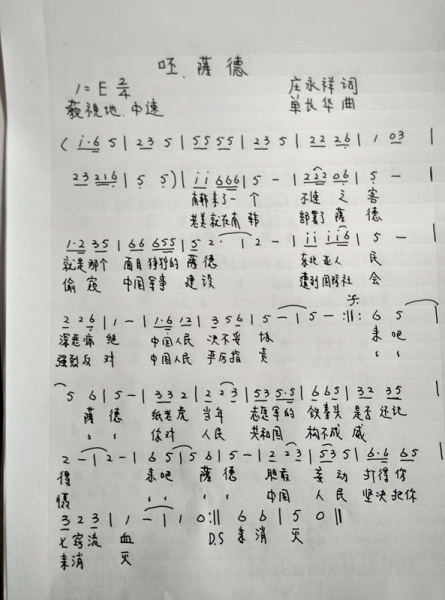 呸、薩德
1=E 2/4 庄永祥词
藐視地.中速 单长华曲
(i·6 5|2 3 5|5 5 5 5|2 3 5|2 2 2 6|1 0 3|
2 3 2 1 6|5 5)|i i 6 6 6|5 -|2 2 2 0 6|5 -|
南韩来了一个 不速之客
老美就在南韩 部署了薩德
1·2 3 5|6 6 6 5 5|5 2·|2 -|i i i i 6|5 -|
就是那个 面目狰狞的薩德 东北亚人民
偷窥 中国军事 建设 遭到国际社会
2 2 6|1 -|1·6 1 2|3 5 6|5 -|5 -:||:6 5|
深恶痛绝 中国人民 决不妥协 来吧
强烈反对 中国人民 严厉指责 〃 〃
5 6|5 -|3 3 2|2 2 3|5 3 5·5|6 6 5|3 2 3 5|
薩德 纸老虎 当年 志愿军的 铁拳头 是否还记
〃 〃 你对 人民 共和国 构不成威
2 -|2 -|6 5|5 6|5 -|2 2 3|5 3 5|6·6 6 5|
得 来吧 薩德 胆敢 妄动 打得你
慑 〃 〃 〃 〃 中国 人民 坚决把你
3 2 3|1 -|1 0:||6 6|5 0||
七窍流血 D.S 来消灭
来消灭